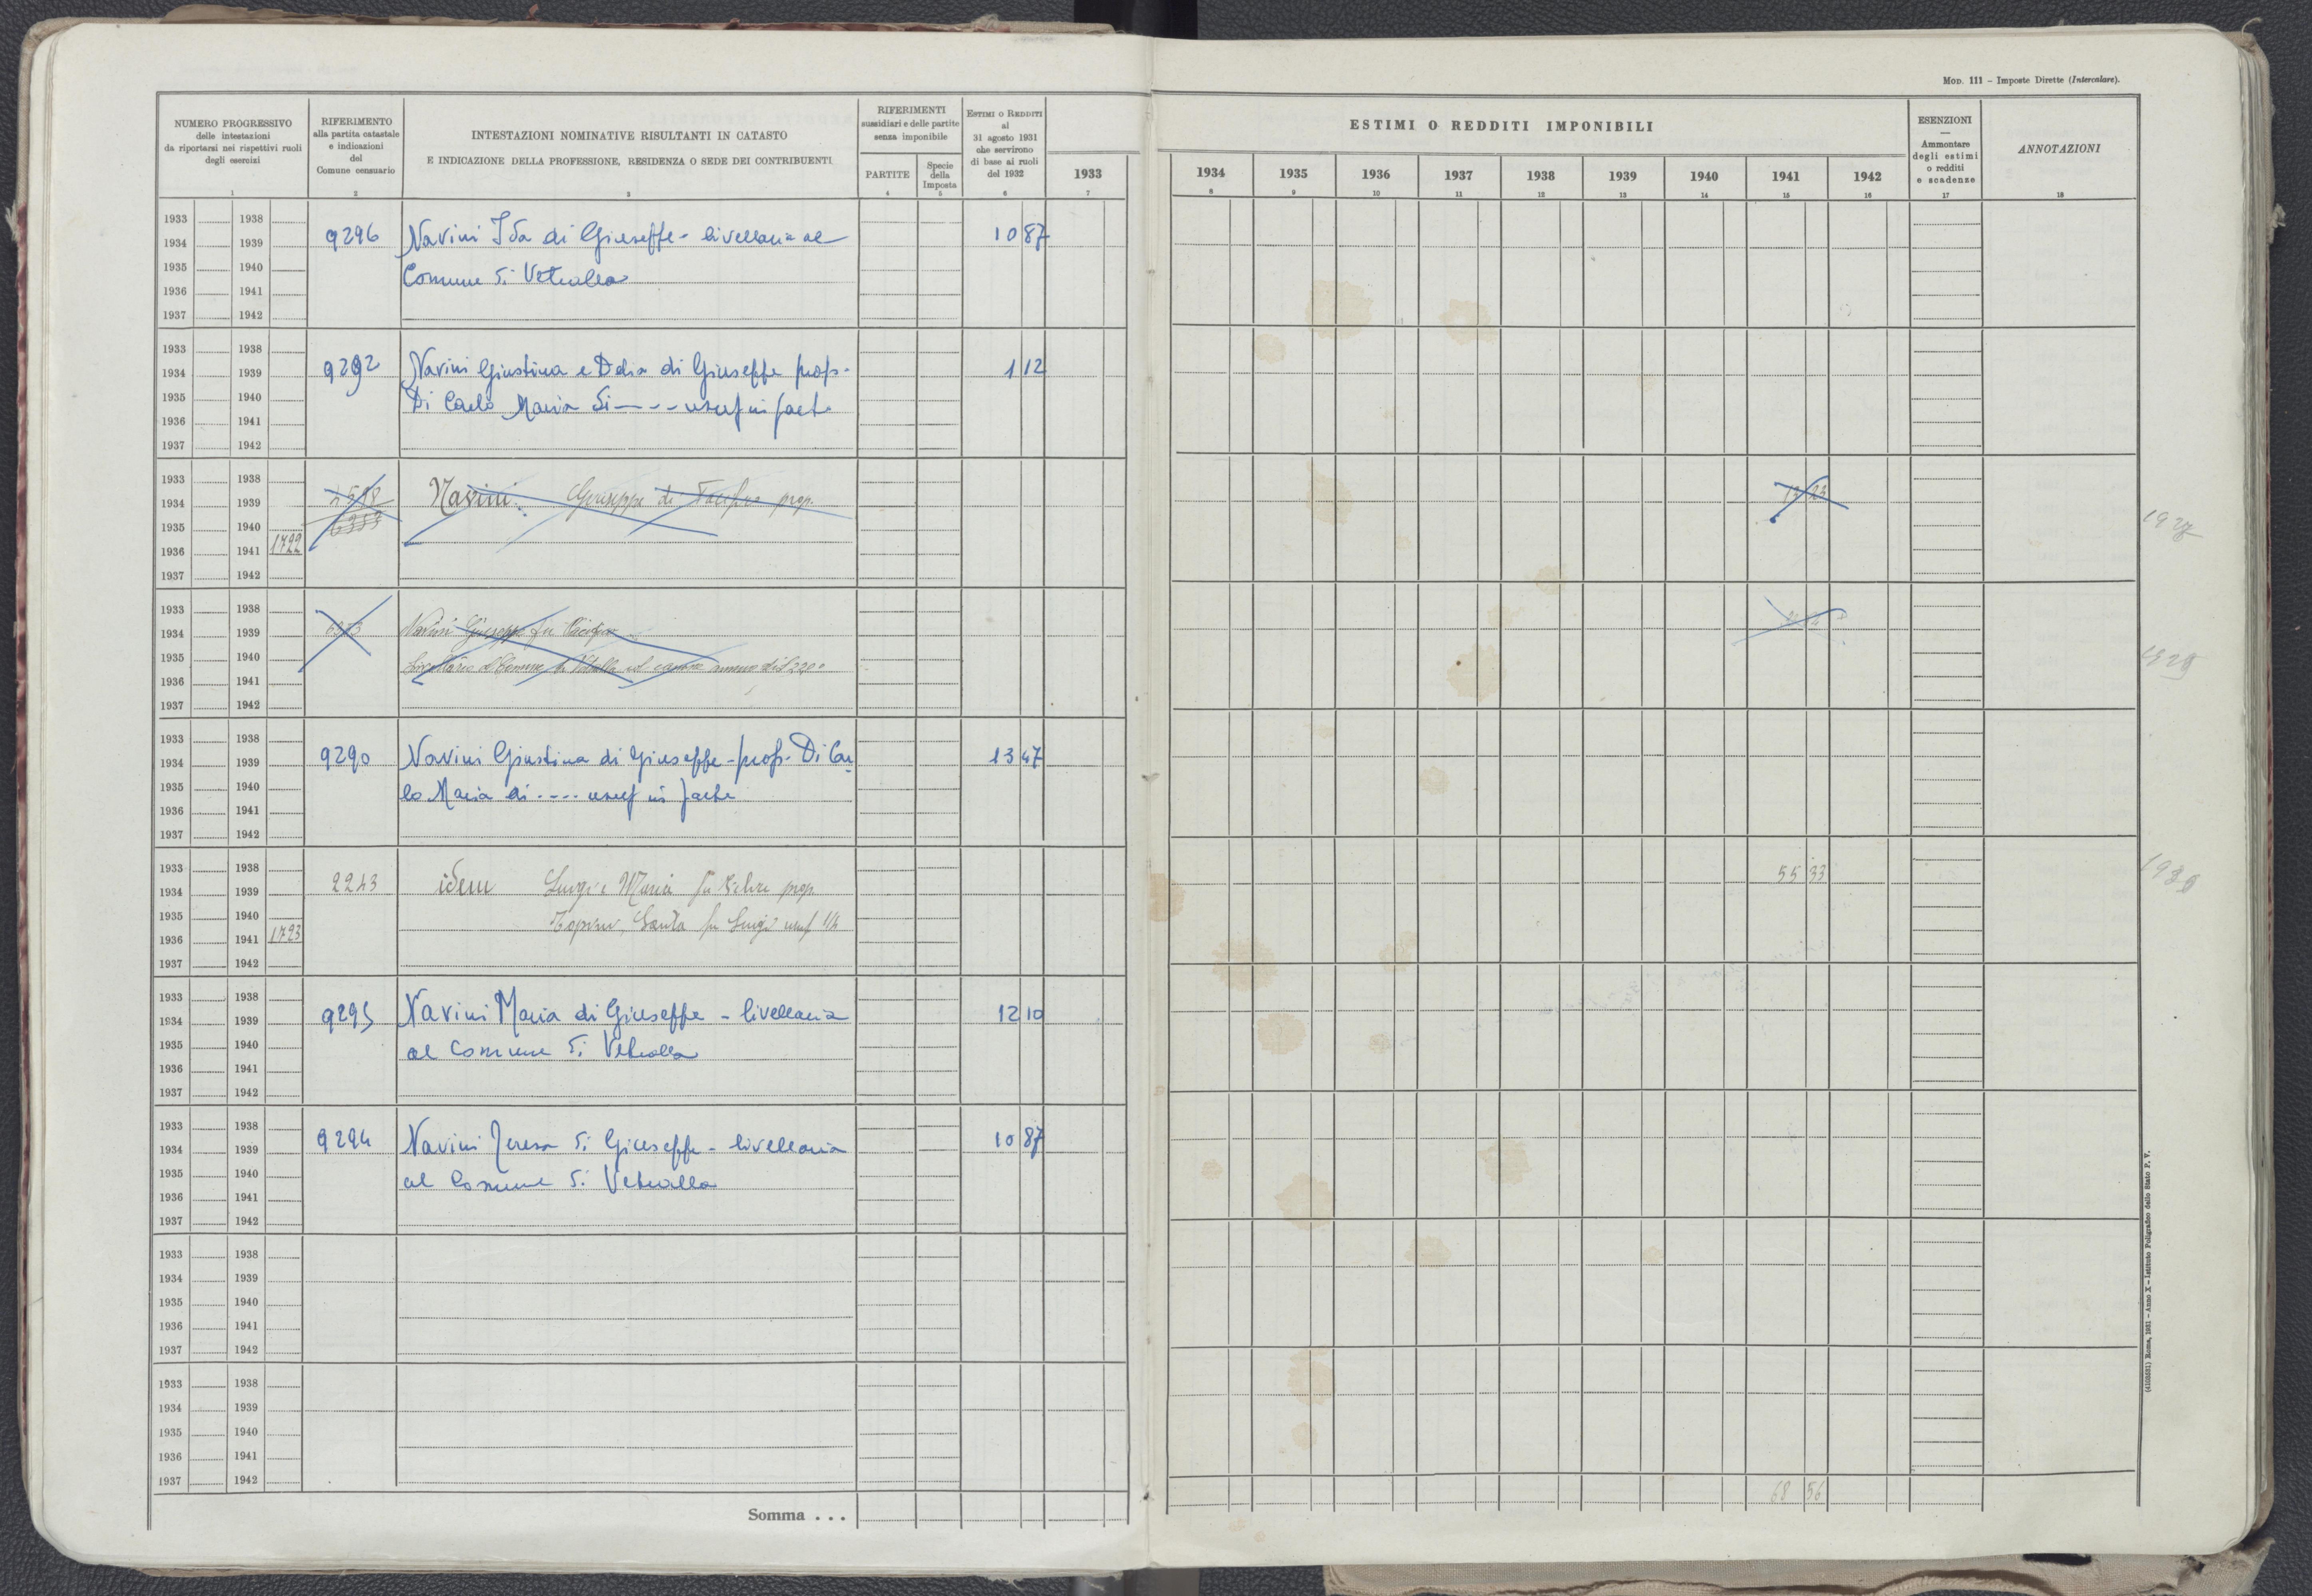 MOD. 111 – Imposte Dirette (Intercalare).
NUMERO PROGRESSIVO
delle intestazioni
da riportarsi nei rispettivi ruoli
degli esercizi
1
RIFERIMENTO
alla partita catastale
e indicazioni
del
Comune censuario
2
INTESTAZIONI NOMINATIVE RISULTANTI IN CATASTO
E INDICAZIONE DELLA PROFESSIONE, RESIDENZA O SEDE DEI CONTRIBUENTI
3
RIFERIMENTI
sussidiari e delle partite
senza imponibile
PARTITE
4
Specie
della
Imposta
5
ESTIMI O REDDITI
al
31 agosto 1931
che servirono
di base ai ruoli
del 1932
6
1933
7
ESTIMI O REDDITI IMPONIBILI
1934 1935 1936 1937 1938 1939 1940 1941 1942
8 9 10 11 12 13 14 15 16
ESENZIONI
—
Ammontare
degli estimi
o redditi
e scadenze
17
ANNOTAZIONI
18
1933 1938
1934 1939 9296 Navini Ida di Giuseppe - livellaria al 10 87
1935 1940 Comune di Vetralla
1936 1941
1937 1942
1933 1938
1934 1939 9292 Navini Giustina e Delia di Giuseppe prop. 1 12
1935 1940 Di Carlo Maria di - - - usuf in parte
1936 1941
1937 1942
1933 1938
1934 1939 Navini Giuseppe di prop. 13 23
1935 1940
1936 1941 1722
1937 1942
1933 1938
1934 1939 Navini Giuseppe fu
1935 1940 Comune di Vetralla
1936 1941
1937 1942
1933 1938
1934 1939 9290 Navini Giustina di Giuseppe - prop. Di Car 13 47
1935 1940 lo Maria di - - - - usuf in parte
1936 1941
1937 1942
1933 1938
1934 1939 2243 idem Luigi e Maria fu prop. 55 33
1935 1940 Santa fu Luigi usuf 1/4
1936 1941 1723
1937 1942
1933 1938
1934 1939 9295 Navini Maria di Giuseppe - livellaria 12 10
1935 1940 al Comune di Vetralla
1936 1941
1937 1942
1933 1938
1934 1939 9294 Navini Teresa di Giuseppe - livellaria 10 87
1935 1940 al Comune di Vetralla
1936 1941
1937 1942
1933 1938
1934 1939
1935 1940
1936 1941
1937 1942
1933 1938
1934 1939
1935 1940
1936 1941
1937 1942
68 56
Somma . . .
(4103531) Roma, 1931 – Anno X – Istituto Poligrafico dello Stato P. V.